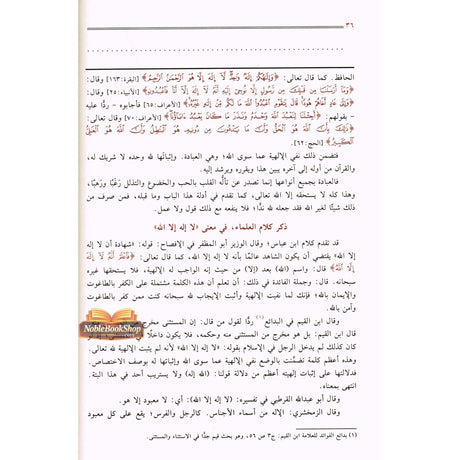 ٣٦
الحافظ. كما قال تعالى: ﴿وَإِلَٰهُكُمْ إِلَٰهٌ وَاحِدٌ لَا إِلَٰهَ إِلَّا هُوَ الرَّحْمَٰنُ الرَّحِيمُ﴾ [البقرة: ١٦٣] وقال:
﴿وَمَا أَرْسَلْنَا مِن قَبْلِكَ مِن رَّسُولٍ إِلَّا نُوحِي إِلَيْهِ أَنَّهُ لَا إِلَٰهَ إِلَّا أَنَا فَاعْبُدُونِ﴾ [الأنبياء: ٢٥] وقال:
﴿وَإِلَىٰ عَادٍ أَخَاهُمْ هُودًا قَالَ يَا قَوْمِ اعْبُدُوا اللَّهَ مَا لَكُم مِّنْ إِلَٰهٍ غَيْرُهُ﴾ [الأعراف: ٦٥] فأجابوه - ردًا عليه
- بقولهم: ﴿أَجِئْتَنَا لِنَعْبُدَ اللَّهَ وَحْدَهُ وَنَذَرَ مَا كَانَ يَعْبُدُ آبَاؤُنَا﴾ [الأعراف: ٧٠] وقال تعالى:
﴿ذَٰلِكَ بِأَنَّ اللَّهَ هُوَ الْحَقُّ وَأَنَّ مَا يَدْعُونَ مِن دُونِهِ هُوَ الْبَاطِلُ وَأَنَّ اللَّهَ هُوَ الْعَلِيُّ
الْكَبِيرُ﴾ [الحج: ٦٢].
فتضمن ذلك نفي الإلهية عما سوى الله؛ وهي العبادة. وإثباتها لله وحده لا شريك له،
والقرآن من أوله إلى آخره يبين هذا ويقرره ويرشد إليه.
فالعبادة بجميع أنواعها إنما تصدر عن تألُّه القلب بالحب والخضوع والتذلل رَغَبًا ورَهَبًا،
وهذا كله لا يستحقه إلا الله تعالى، كما تقدم في أدلة هذا الباب وما قبله، فمن صرف من
ذلك شيئًا لغير الله فقد جعله لله ندًّا؛ فلا ينفعه مع ذلك قول ولا عمل.
ذكر كلام العلماء، في معنى «لا إله إلا الله»
قد تقدم كلام ابن عباس؛ وقال الوزير أبو المظفر في الإفصاح: قوله: «شهادة أن لا إله
إلا الله» يقتضي أن يكون الشاهد عالمًا بأنه لا إله إلا الله؛ كما قال تعالى: ﴿فَاعْلَمْ أَنَّهُ لَا إِلَٰهَ
إِلَّا اللَّهُ﴾ قال: واسم (الله) بعد (إلا) من حيث إنه الواجب له الإلهية، فلا يستحقها غيره
سبحانه. قال: وجملة الفائدة في ذلك: أن تعلم أن هذه الكلمة مشتملة على الكفر بالطاغوت
والإيمان بالله؛ فإنك لما نفيت الإلهية وأثبت الإيجاب لله سبحانه كنت ممن كفر بالطاغوت
وآمن بالله.
وقال ابن القيم في البدائع (١) ردًّا لقول من قال: إن المستثنى مخرج
قال ابن القيم: بل هو مخرج من المستثنى منه وحكمه، فلا يكون داخلًا
كان كذلك لم يدخل الرجل في الإسلام بقوله: «لا إله إلا الله» لأنه لم يثبت الإلهية لله تعالى.
وهذه أعظم كلمة تضمَّنت بالوضع نفي الإلهية عما سوى الله وإثباتها له بوصف الاختصاص.
فدلالتها على إثبات إلهيته أعظم من دلالة قولنا: (الله إله) ولا يستريب أحد في هذا البتة.
انتهى بمعناه.
وقال أبو عبدالله القرطبي في تفسيره: (لا إله إلا الله): أي: لا معبود إلا هو.
وقال الزمخشري: الإله من أسماء الأجناس. كالرجل والفرس؛ يقع على كل معبود
(١) بدائع الفوائد للعلامة ابن القيم: ج٣ ص ٥٦، وهو بحث قيم جدًّا في الاستثناء والمستثنى.
NobleBookShop